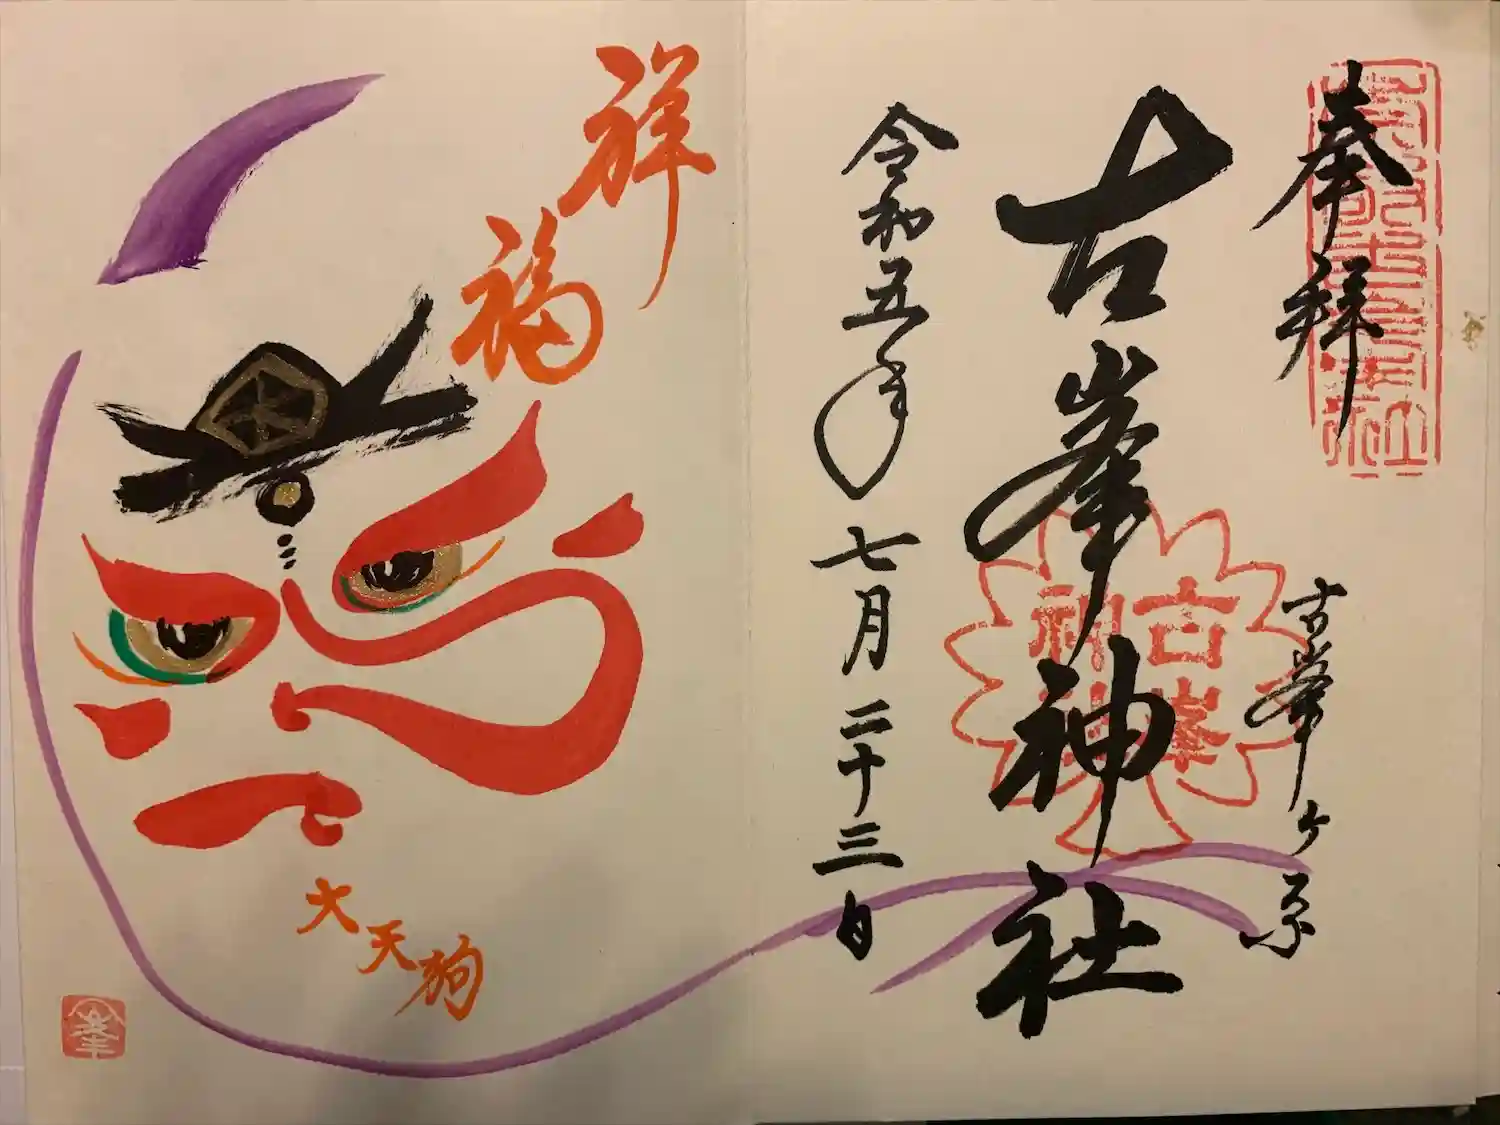 奉拝
古峯ヶ原
古峯神社
古峯
神社
令和五年七月二十三日
祥福
大天狗
峯